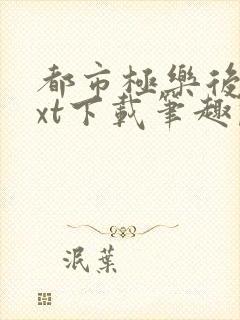 都市極樂後
xt下載筆趣
泯葉